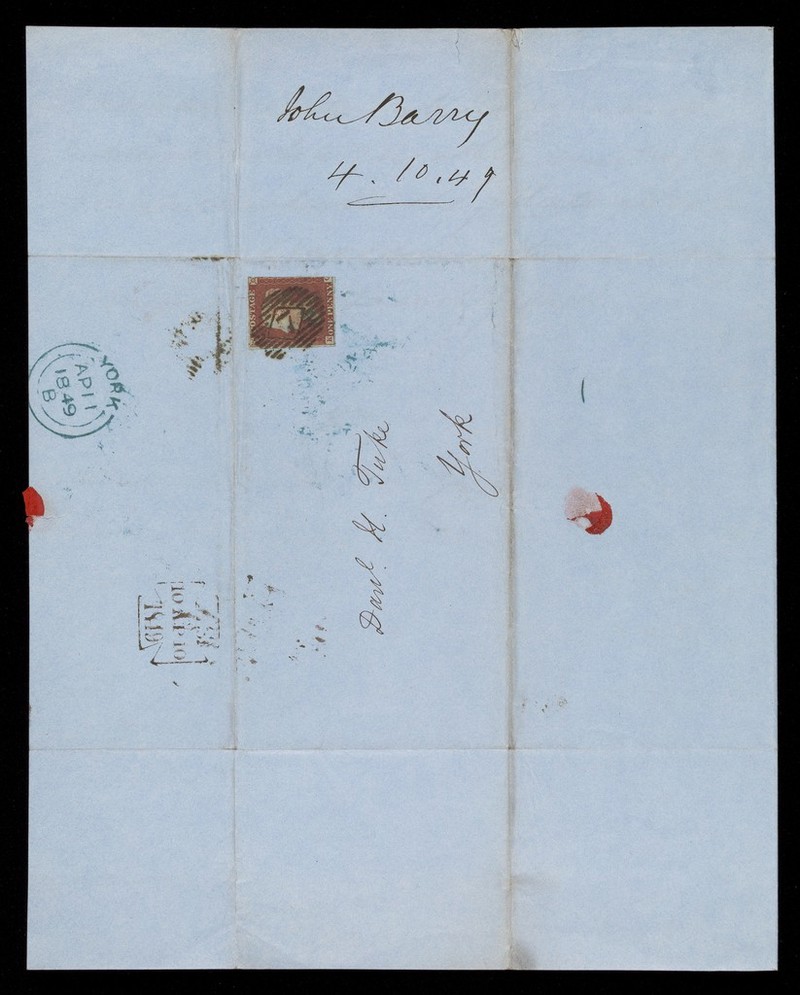 John Barry
4.10.49
POSTAGE
ONE PENNY
YORK
AP 11
1849
B
Danl. H. Tuke
York
10 AP 10
1849